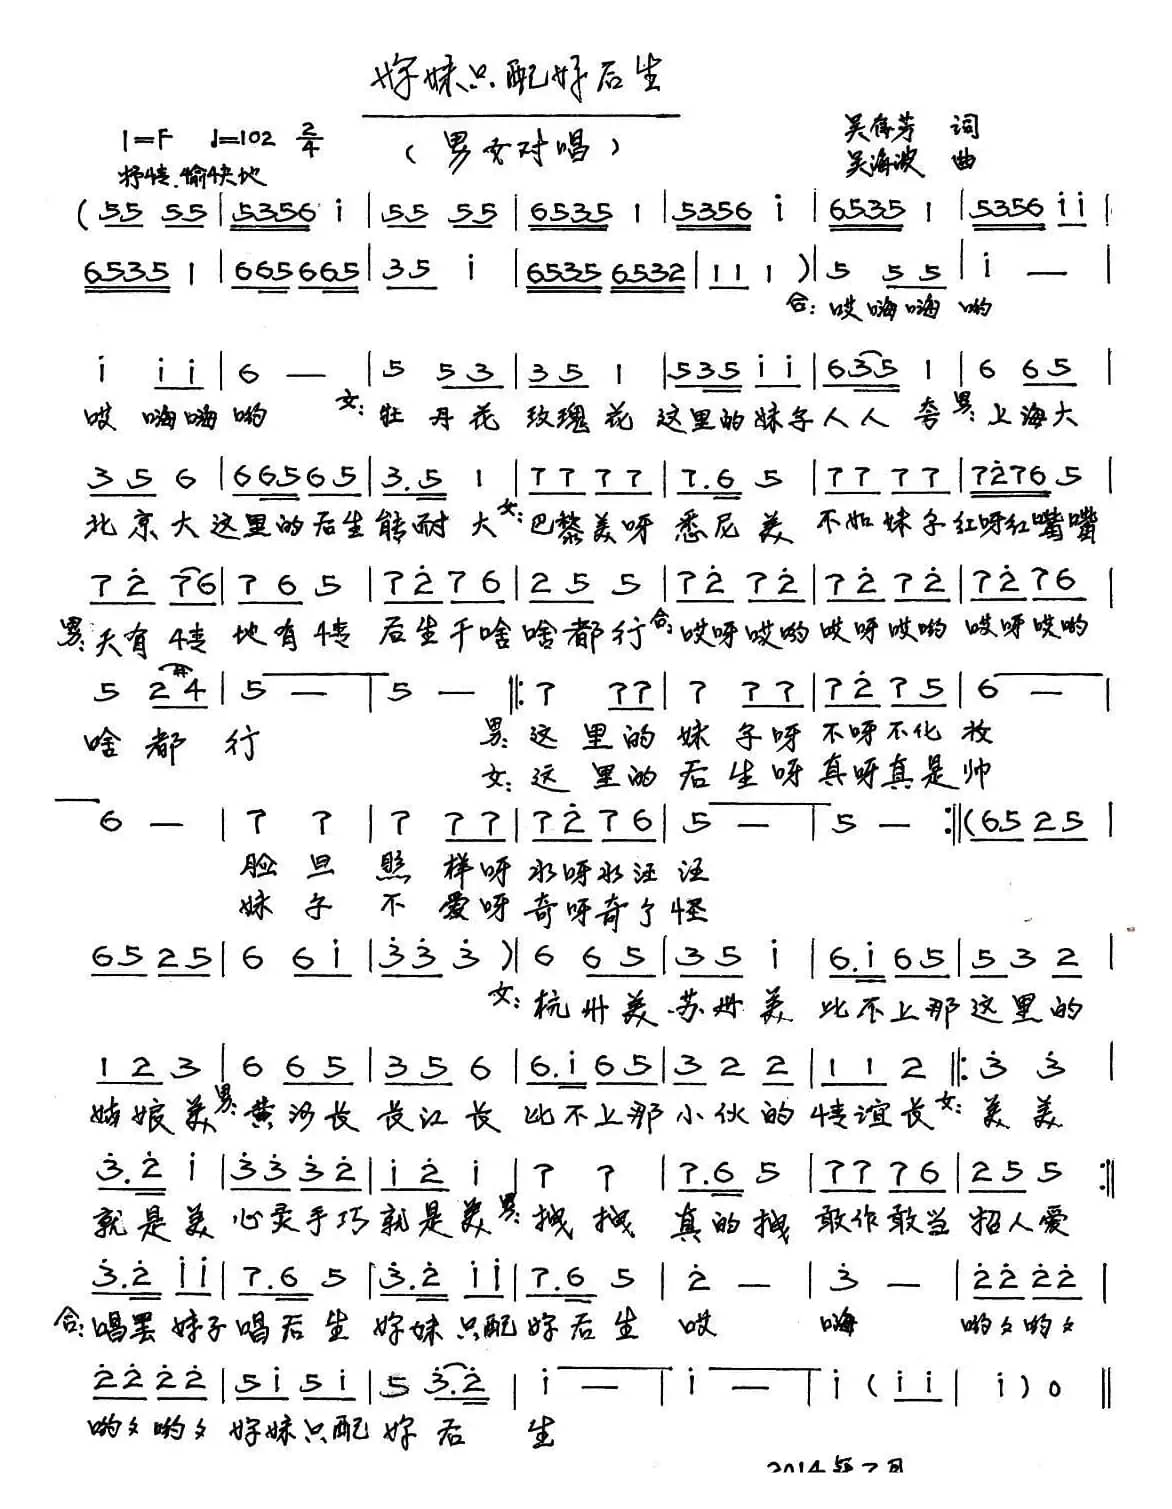 好妹只配好后生
(男女对唱)
1=F ♩=102 2/4
吴存芳 词
抒情.愉快地
吴海波 曲
(55 55|5356 i|55 55|6535 1|5356 i|6535 1|5356 ii|
6535 1|665665|35 i|6535 6532|11 1)|5 55|i —|
合:哎嗨嗨哟
i ii|6 —|5 53|35 1|535 ii|635 1|6 65|
哎嗨嗨哟 女:牡丹花 玫瑰花 这里的妹子人人夸 男:上海大
35 6|66565|3.5 1|77 77|7.6 5|77 77|7276 5|
北京大这里的后生能耐大 女:巴黎美呀悉尼美 不如妹子红呀红嘴嘴
72 76|76 5|72 76|25 5|72 72|72 72|72 76|
男:天有情 地有情 后生干啥啥都行 合:哎呀哎哟哎呀哎哟 哎呀哎哟
5 2#4|5 —|5 —‖:7 77|7 77|72 75|6 —|
啥都行 男:这里的妹子呀不呀不化妆
女:这里的后生呀真呀真是帅
6 —|7 7|7 77|72 76|5 —|5 —:‖(65 25|
脸旦照样呀水呀水汪汪
妹子不爱呀奇呀奇了怪
65 25|6 6i|33 3)|6 65|35 i|6.i 65|53 2|
女:杭州美.苏州美 比不上那这里的
12 3|6 65|35 6|6.i 65|3 2 2|11 2‖:3 3|
姑娘美 男:黄河长 长江长 比不上那小伙的情谊长 女:美美
3.2 i|33 32|i2 i|7 7|7.6 5|77 76|25 5:‖
就是美 心灵手巧就是美 男:拽拽 真的拽 敢作敢当招人爱
3.2 ii|7.6 5|3.2 ii|7.6 5|2 —|3 —|22 22|
合:唱罢妹子唱后生 好妹只配好后生 哎 嗨 哟々哟々
22 22|5i 5i|5 3.2|i —|i —|i(ii|i)0‖
哟々哟々 好妹只配好后生
2014年7月